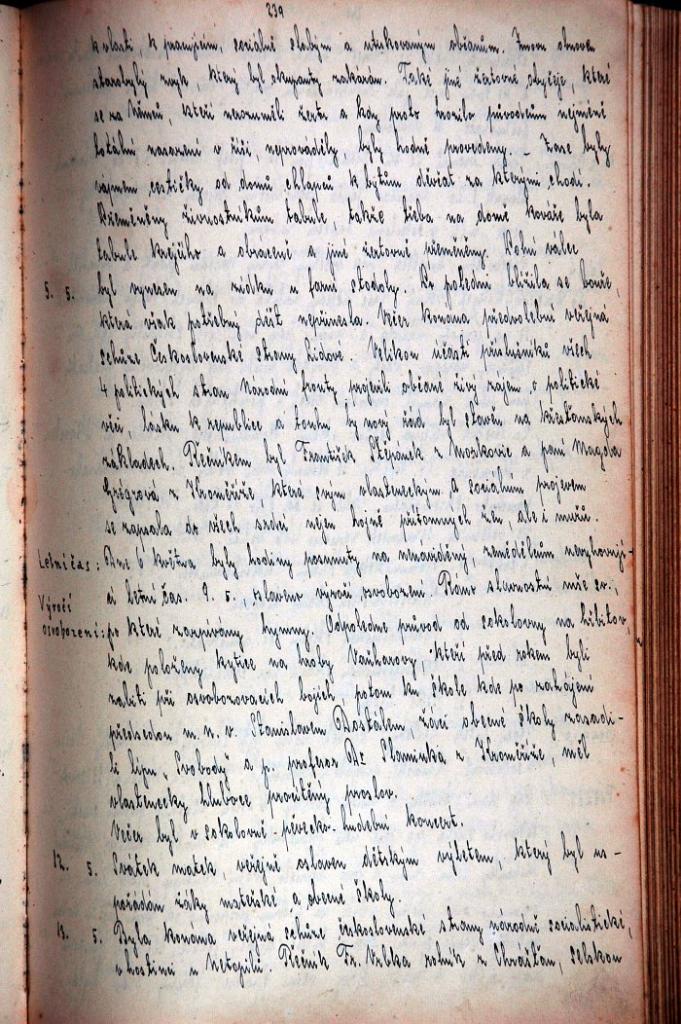 239
k vlasti, k pracujícím, sociálně slabým a utiskovaným občanům. Znovu obnoven
starobylý zvyk, který byl okupanty zakázán. Také jiné žertovné obyčeje, které
se za Němců, kteří nerozuměli žertu a kdy proto hrozilo původcům nejméně
totální nasazení v říši, neprováděly, byly hodně provedeny. – Zase byly
vápnem cestičky od domů chlapců k bytům děvčat za kterými chodí.
Přeměněny živnostníkům tabule, takže třeba na domě kováře byla
tabule krejčího a obráceně a jiné žertovně přeměněny. Polní válec
byl vynesen na zídku u farní stodoly. K polední blížila se bouře,
5. 5.
která však potřebný déšť nepřinesla. Večer konána předvolební veřejná
schůze Československé strany lidové. Velikou účastí příslušníků všech
4 politických stran Národní fronty projevili občané živý zájem o politické
věci, lásku k republice a touhu by nový řád byl stavěn na křesťanských
základech. Řečníkem byl František Štěpánek z Morkovic a paní Magda
Grégrová z Kroměříže, která svým vlasteneckým a sociálním projevem
se zapsala do všech srdcí nejen hojně přítomných žen, ale i mužů.
Letní čas: Dne 6 května byly hodiny posunuty na nenáviděný, zemědělcům nevyhovují-
cí letní čas. 9. 5., slaveno výročí osvobození. Ráno slavnostní mše sv.,
Výročí
osvobození: po které zazpívány hymny. Odpoledne průvod od sokolovny na hřbitov,
kde položeny kytice na hroby Vaňharovy, kteří před rokem byli
zabiti při osvobozovacích bojích, potom ku škole kde po zahájení
předsedou m. n. v. Stanislavem Dostálem, žáci obecné školy zasadi-
li lípu „Svobody" a p. profesor Dr Slaminka z Kroměříže, měl
vlastenecky hluboce procítěný proslov.
Večer byl v sokolovně pěvecko-hudební koncert.
12. 5. Svátek matek, veřejně oslaven dětským výletem, který byl us-
pořádán žáky mateřské a obecné školy.
13. 5. Byla konána veřejná schůze československé strany národně socialistické,
v hostinci u Netopilů. Řečník Fr. Vrbka rolník z Chrášťan, selskou